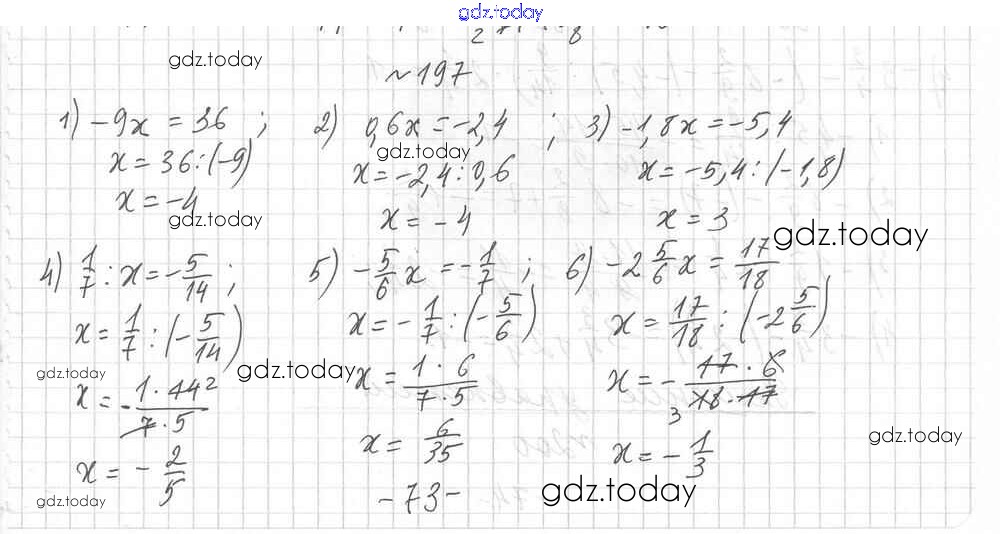 gdz.today
gdz.today
№197
1) -9x = 36 ; 2) 0,6x = -2,4 ; 3) -1,8x = -5,4
x = 36 : (-9) x = -2,4 : 0,6 x = -5,4 : (-1,8)
gdz.today
x = -4 x = -4 x = 3
gdz.today gdz.today
4) 1/7 : x = -5/14 ; 5) -5/6 x = -1/7 ; 6) -2 5/6 x = 17/18
x = 1/7 : (-5/14) x = -1/7 : (-5/6) x = 17/18 : (-2 5/6)
gdz.today gdz.today
x = -1·14 2/7·5 x = 1·6/7·5 x = -17·6/18·17 3
gdz.today
x = -2/5 x = 6/35 x = -1/3
gdz.today -73- gdz.today